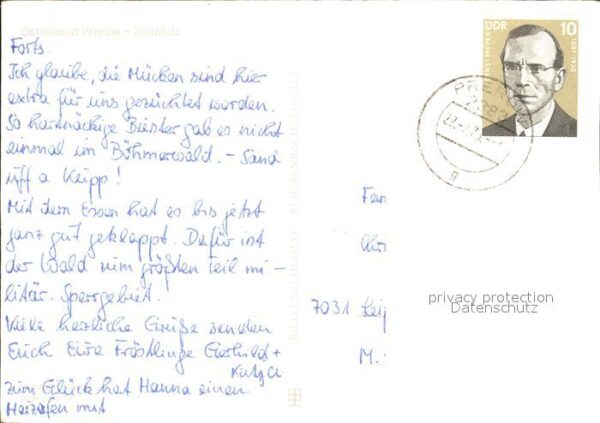 Ostseebad Prerow – Zeltplatz
Forts.
Ich glaube, die Mücken sind hier
extra für uns gezüchtet worden.
So hartnäckige Biester gab es nicht
einmal im Böhmerwald. – Sand
uff a Kipp!
Mit dem Essen hat es bis jetzt
ganz gut geklappt. Dafür ist
der Wald zum größten Teil mi-
litär. Sperrgebiet.
Viele herzliche Grüße senden
Euch Eure Fröstlinge Gerhild +
zum Glück hat Hanna einen
Heizofen mit
DDR 10
PREROW
2383
g
7031 Leip
M.
privacy protection
Datenschutz